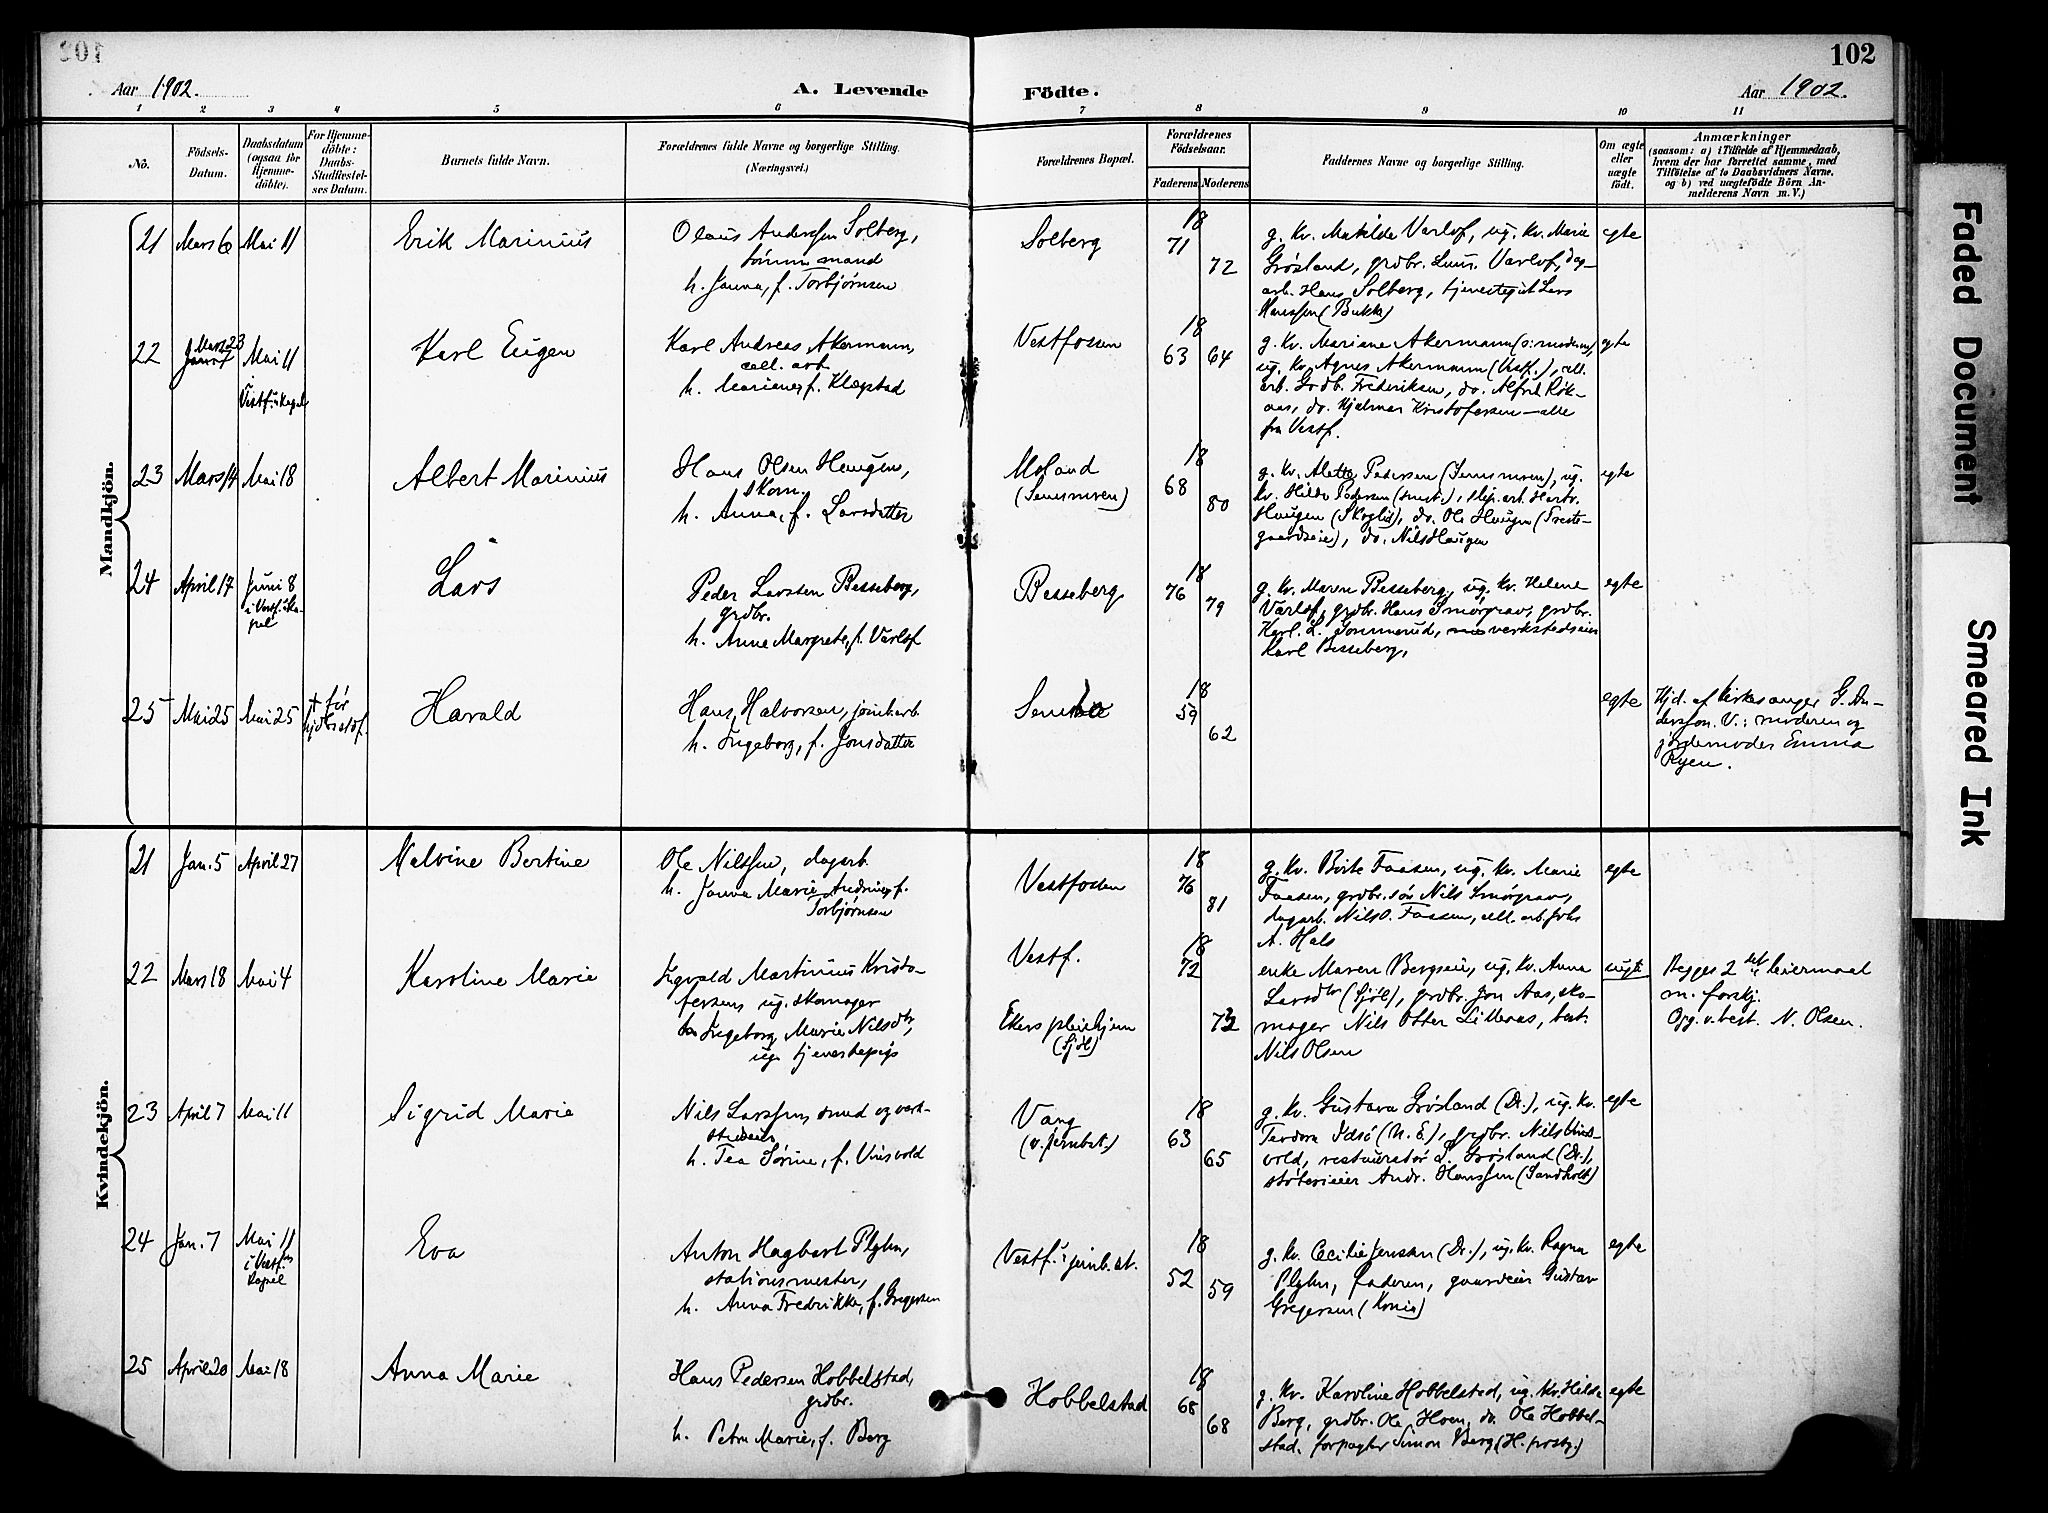 102
Aar 1902.
A. Levende
Födte.
Aar 1902.
1 2 3 4 5 6 7 8 9 10 11
No.
Födsels-Datum.
Daabsdatum (ogsaa for Hjemme-döbte).
For Hjemme-döbte: Daabs-Stadfæstel-ses Datum.
Barnets fulde Navn.
Forældrenes fulde Navne og borgerlige Stilling.
(Næringsvei.)
Forældrenes Bopæl.
Forældrenes Födselsaar.
Faderens Moderens
Faddernes Navne og borgerlige Stilling.
Om ægte eller uægte födt.
Anmærkninger
(saasom: a) i Tilfælde af Hjemmedaab, hvem der har forrettet samme, med Tilföielse af to Daabsvidners Navne, og b) ved uægtefödte Börn Anmelderens Navn m. V.)
Mandkjön.
21 Mars 6 Mai 11 Erik Marinius
Olaus Anderssen Solberg,
h. Janna, f. Torbjørnsen
Solberg
18 71 72
g. kv. Matilde Varlof, ug. kv. Marie
Grøsland, grdbr. Varlof, dag-
arb. Hans Solberg, tjenestegut Lars
Hanssen (Bukk)
egte
22 Mars 23 Mai 11
Karl Eugen
Karl Andreas Akermann,
cell. arb.
h. Mariane, f. Klegstad
Vestfossen
18 63 64
g. kv. Mariane Akermann (o: moderen),
ug. kv. Agnes Akermann (Vestf.), cell.
arb. Frederiksen, do. Alfred Røk-
aas, do. Hjalmar Kristofersen – alle
fra Vestf.
egte
23 Mars 14 Mai 18 Albert Marinius
Hans Olsen Haugen,
skom.
h. Anna, f. Larsdatter
Moland
18 68 80
g. kv. Alette Pedersen, ug.
kv. Hilda Pedersen, slip. arb.
Haugen (Skoglid), do. Ole Haugen
do. Nils Haugen
egte
24 April 17 Juni 8
i Vestf. ka-
pel
Lars
Peder Larssen Besseberg,
grdbr.
h. Anne Margrete, f. Varlof
Besseberg
18 76 79
g. kv. Maren Besseberg, ug. kv. Helene
Varlof, grdbr. Hans Smørgrav, grdbr.
Karl L. Gommerud, verkstedseier
Karl Besseberg,
egte
25 Mai 25 Mai 25
† før
Harald
Hans Halvorsen, jernb.arb.
h. Ingeborg, f. Jonsdatter
18 59 62
egte
Hjd. af kirkesanger G. An-
derssen. V.: moderen og
jordemoder Emma
Ryen.
Kvindekjön.
21 Jan. 5 April 27 Malvine Bertine
Ole Nilssen, dagarb.
h. Janna Marie Andrine, f.
Torbjørnsen
Vestfossen
18 76 81
g. kv. Berte Faasen, ug. kv. Marie
Faasen, grdbr. søn Nils Smørgrav,
dagarb. Nils O. Faasen, cell. arb. Johs
A. Hals
egte
22 Mars 18 Mai 4 Karoline Marie
Ingvald Martinius Kristo-
fersen ug. skomager
Ingeborg Marie Nilsdtr,
ug. tjenestepige
Vestf.
Ekers pleiehjem
18 72
enke Maren Bergseie, ug. kv. Anna
Larsdtr, grdbr. Jon Aas, sko-
mager Nils Otter Lilleaas,
Nils Olsen
uegte
Begges 2det leiermaal
m. forskj.
Opg. v. best. N. Olsen.
23 April 7 Mai 11 Sigrid Marie
Nils Larssen, smed og verk-
stedeier
h. Tea Sørine, f. Vinsvold
Vang
(v. jernbst.)
18 63 65
g. kv. Gustava Grøsland (Dr.), ug. kv.
Teodora Idsø (N. E.), grdbr. Nils Vins-
vold, restauratør L. Grøsland (Dr.),
støterieier Andr. Hanssen (Sandholt)
egte
24 Jan. 7 Mai 11
i Vestf.
kapel
Eva
Anton Hagbart Plyhn,
stationsmester,
h. Anna Fredrikke, f. Gregersen
Vestf. jernb. st.
18 52 59
g. kv. Cecilie Jensen (Dr.), ug. kv. Ragna
Plyhn, faderen, gaardeier Gustav
Gregersen
egte
25 April 20 Mai 18 Anna Marie
Hans Pedersen Hobbelstad,
grdbr.
h. Petra Marie, f. Berg
Hobbelstad
18 68 68
g. kv. Karoline Hobbelstad, ug. kv. Hilda
Berg, grdbr. Ole Hoen, do. Ole Hobbel-
stad, forpagter Simon Berg (H. prestg.)
egte
Faded Document
Smeared Ink